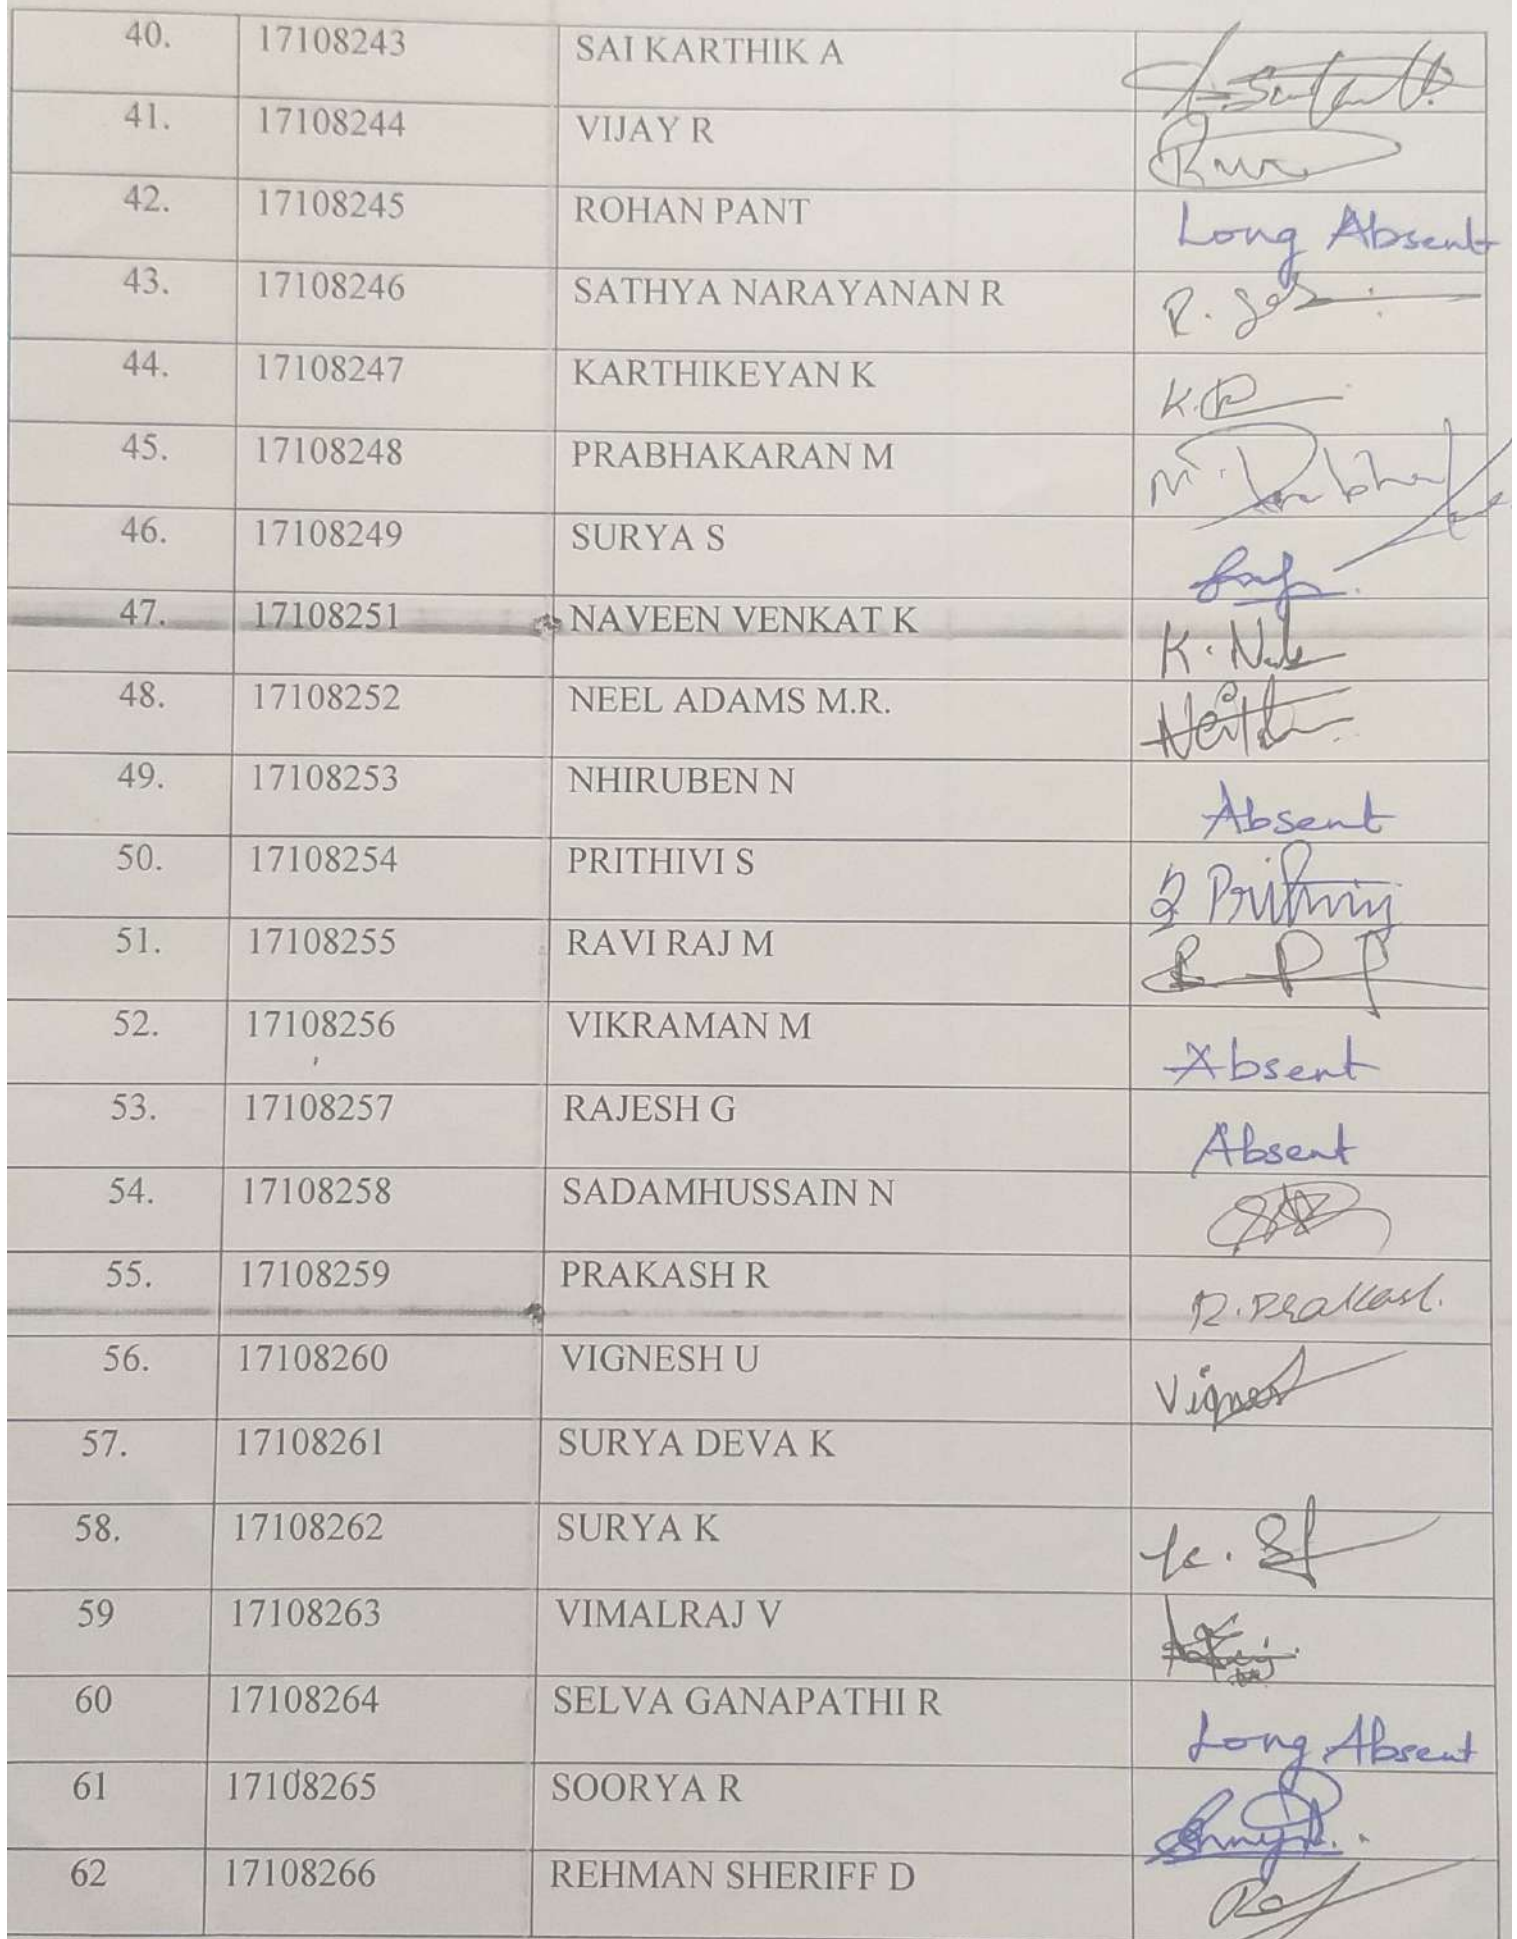 40. 17108243 SAI KARTHIK A
41. 17108244 VIJAY R
42. 17108245 ROHAN PANT Long Absent
43. 17108246 SATHYA NARAYANAN R
44. 17108247 KARTHIKEYAN K
45. 17108248 PRABHAKARAN M
46. 17108249 SURYA S
47. 17108251 NAVEEN VENKAT K
48. 17108252 NEEL ADAMS M.R.
49. 17108253 NHIRUBEN N Absent
50. 17108254 PRITHIVI S
51. 17108255 RAVI RAJ M
52. 17108256 VIKRAMAN M Absent
53. 17108257 RAJESH G Absent
54. 17108258 SADAMHUSSAIN N
55. 17108259 PRAKASH R R. Prakash.
56. 17108260 VIGNESH U
57. 17108261 SURYA DEVA K
58. 17108262 SURYA K
59 17108263 VIMALRAJ V
60 17108264 SELVA GANAPATHI R Long Absent
61 17108265 SOORYA R
62 17108266 REHMAN SHERIFF D